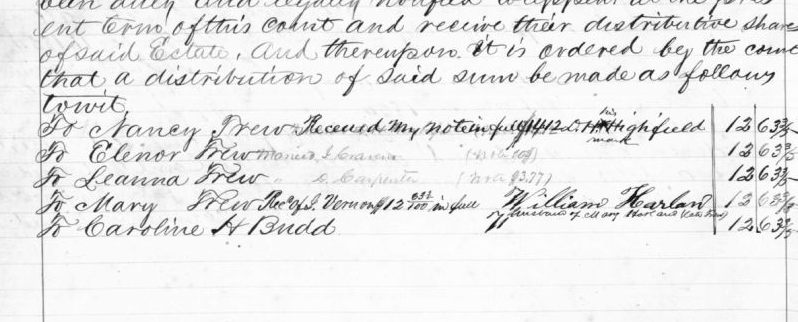 been duly and legally notified to appear at the pres
ent term of this court and receive their distributive shares
of said Estate, And thereupon it is ordered by the court
that a distribution of said sum be made as follows
towit
To Nancy Trew Received my note in full D. H. Highfield 12 63 3/5
his
mark
To Elenor Trew married J. 12 63 3/5
To Leanna Trew " Carpenter 12 63 3/5
To Mary Trew Recd of J. Vernon $12 63 1/2/100 in full William Harlan 12 63 3/5
husband of Mary Harland (late Trew)
To Caroline H Budd 12 63 3/5